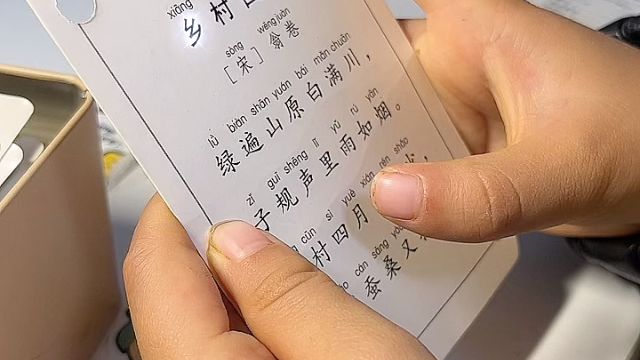 xiāng
乡村
sòng wēng juàn
［宋］翁卷
lǜ biàn shān yuán bái mǎn chuān
绿遍山原白满川，
zǐ guī shēng lǐ yǔ rú yān
子规声里雨如烟。
cūn sì yuè xián rén shǎo
村四月
cán sāng yòu
蚕桑又